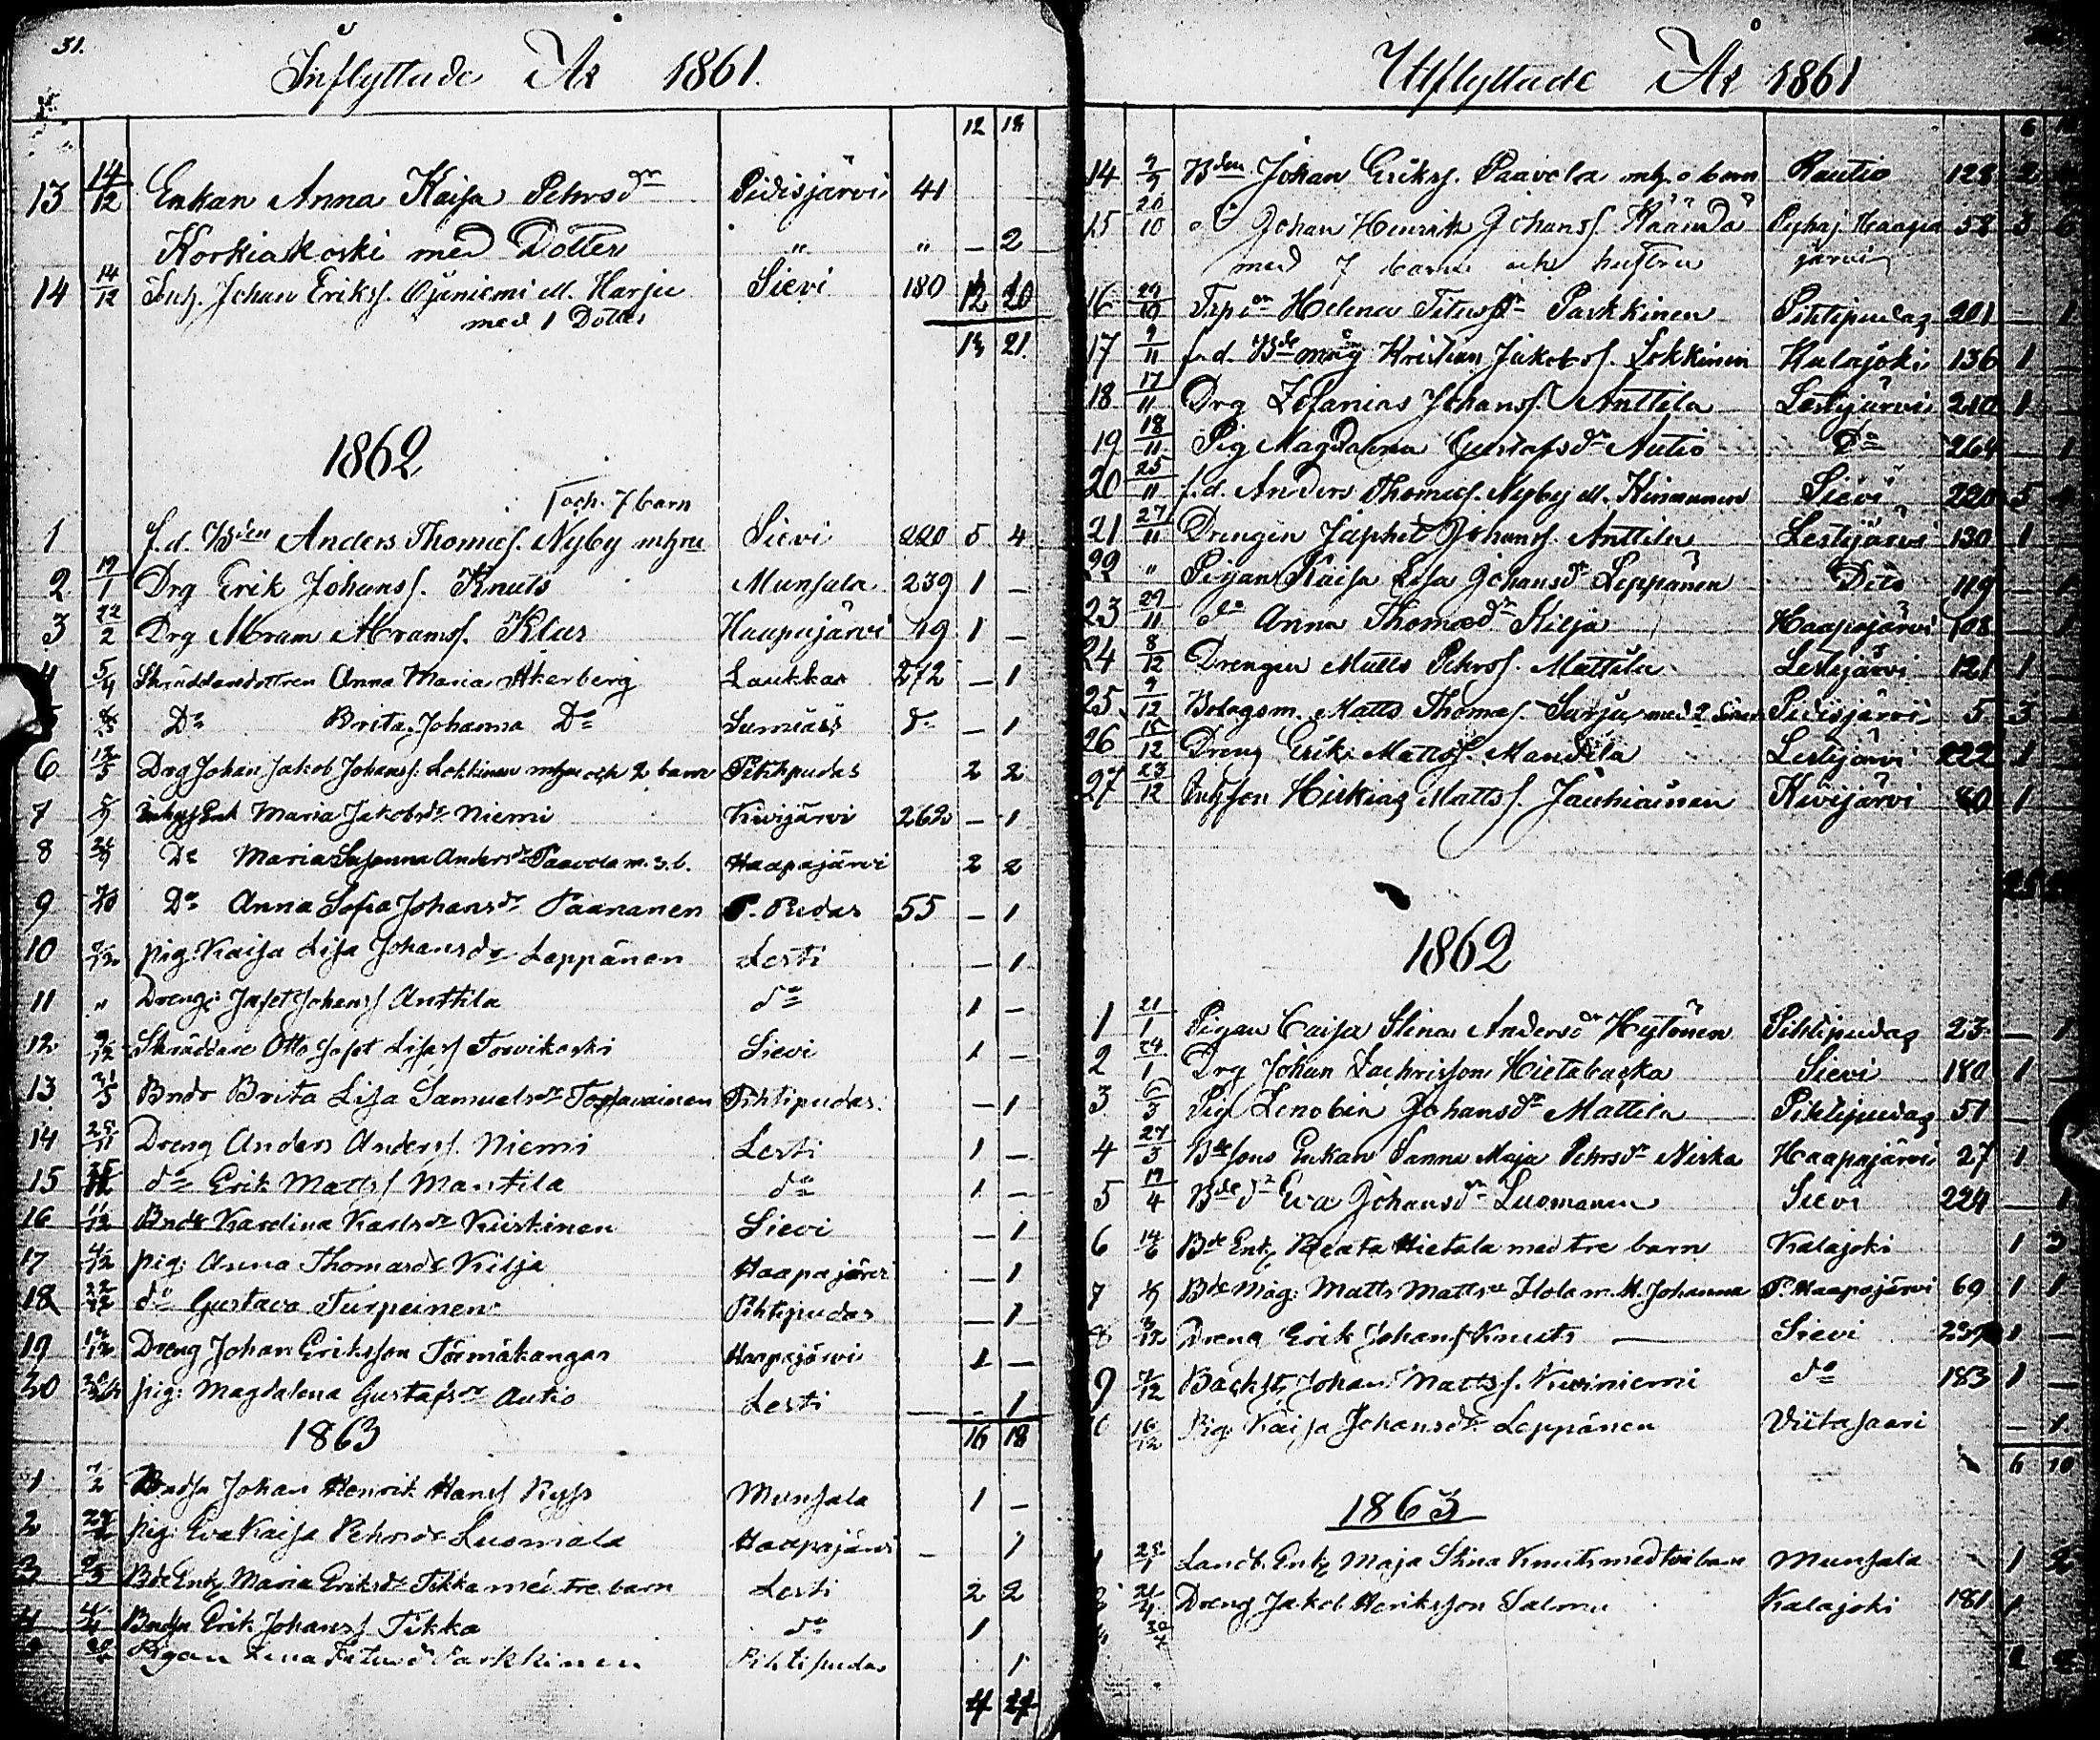 31.
Inflyttade År 1861.
12 18
13 14/12 Enkan Anna Kaisa Pehrsdr Pidisjärvi 41
Korkiakoski med Dotter " " – 2
14 14/12 Inh. Johan Erikss. Ojaniemi ell. Harju Sievi 180 12 20
med 1 Dotter
13 21
1862
och 7 barn
1 f.d. Bden Anders Thomæs. Nyby mhru Sievi 220 5 4
2 19/1 Drg Erik Johanss. Knuts Munsala 239 1 –
3 22/2 Drg Abram Abramss. Klas Haapajärvi 49 1 –
4 5/4 Skräddaredottren Anna Maria Åkerberg Laukkas 272 – 1
5 Do Brita Johanna Do Sumiais do – 1
6 Drg Johan Jakob Johanss. Lokkinen mhru och 2 barn Pihtipudas 2 2
7 Inhys Enk Maria Jakobsdr Niemi Kivijärvi 262 – 1
8 Do Maria Susanna Andersdr Paavola m. 3. b. Haapajärvi 2 2
9 Do Anna Sofia Johansdr Paananen P. Pudas 55 – 1
10 pig: Kaisa Lisa Johansdr Leppänen Lesti – 1
11 " Dreng: Jafet Johanss Anttila do 1 –
12 Skräddare Otto Jafet Lisas s Torvikoski Sievi 1 –
13 Bndr Brita Lisa Samuelsdr Pihtipudas. – 1
14 Dreng Anders Anderss. Niemi Lesti 1 –
15 do Erik Matts s Mantila do 1 –
16 11/12 Bndr Karolina Karlsdr Kuiskinen Sievi – 1
17 4/12 pig: Anna Thomasdr Kilja Haapajärvi – 1
18 22/12 do Gustava Turpeinen Pihtipudas – 1
19 Dreng Johan Eriksson Törmäkangas Haapajärvi 1 –
20 pig: Magdalena Gustafsdr Autio Lesti – 1
16 18
1863
1 Bndsn Johan Henrik Hanss Ryss Munsala 1 –
2 pig: Eva Kaisa Pehrsdr Luomala Haapajärvi – 1
3 Bde Enk Maria Eriksdr Tikka med tre barn Lesti 2 2
4 4/4 Bndsn Erik Johanss Tikka do 1
Pigan Lena Titusdr Parkkinen Pihtipudas 1
4
Utflyttade År 1861
6
14 Bden Johan Erikss. Paavola mh. o barn Rautio 128 2
15 20/10 do Johan Henrik Johanss. Pyhaj. Haapa 58 3 6
med 7 barn och hustru järvi
16 29/10 Helena Titusdr Parkkinen Pihtipudas 201 – 1
17 9/11 f.d. Bde måg Kristian Jakobss. Lokkinen Kalajoki 136 1 –
18 17/11 Drg Zefanias Johanss. Anttila Lestijärvi 210 1 –
19 18/11 Pig Magdalena Gustafsdr Autio Do 264 – 1
20 25/11 f.d. Anders Thomæs. Nyby ell. Kinnunen Sievi 220 5 4
21 27/11 Drengen Japhet Johanss. Anttila Lestijärvi 130 1 –
22 " Pigan Kaisa Lisa Johansdr Leppänen Dito 119 – 1
23 29/11 do Anna Thomædr Kilja Haapajärvi 108 – 1
24 8/12 Drengen Matts Pehrss. Mattila Lestijärvi 121 1 –
25 9/12 Bolagsm. Matts Thomæs. Sarju med 2 Söner Pidisjärvi 5 3 –
26 15/12 Dreng Erik Mattss. Mandila Lestijärvi 222 1 –
27 23/12 Hiskias Mattss. Jauhiainen Kivijärvi 80 1 –
1862
1 21/1 Pigan Caisa Stina Andersdr Hytönen Pihtipudas 23 – 1
2 24/1 Drg Johan Zachrisson Hietabacka Sievi 180 1 –
3 6/3 Pig Zenobia Johansdr Mattila Pihtipudas 51 –
4 27/3 Bde sons Enkan Sanna Maja Pehrsdr Niska Haapajärvi 27 1
5 19/4 Bde dr Eva Johansdr Luomanen Sievi 224 – 1
6 14/6 Bde Enk Beata Hietala med tre barn Kalajoki 1 3
7 Bde Måg: Matts Mattss Hola m. H. Johanna P. Haapajärvi 69 1 1
8 Dreng Erik Johanss Knuts — Sievi 239 1 –
9 Backst. Johan Mattss. Kusiniemi do 183 1 –
Pig. Kaisa Johansdr Leppänen Viitasaari – 1
6 10
1863
Landb. Enk Maja Stina Knuts med två barn Munsala 1 2
Dreng Jakob Henriksson Salmu Kalajoki 181 1
2 2